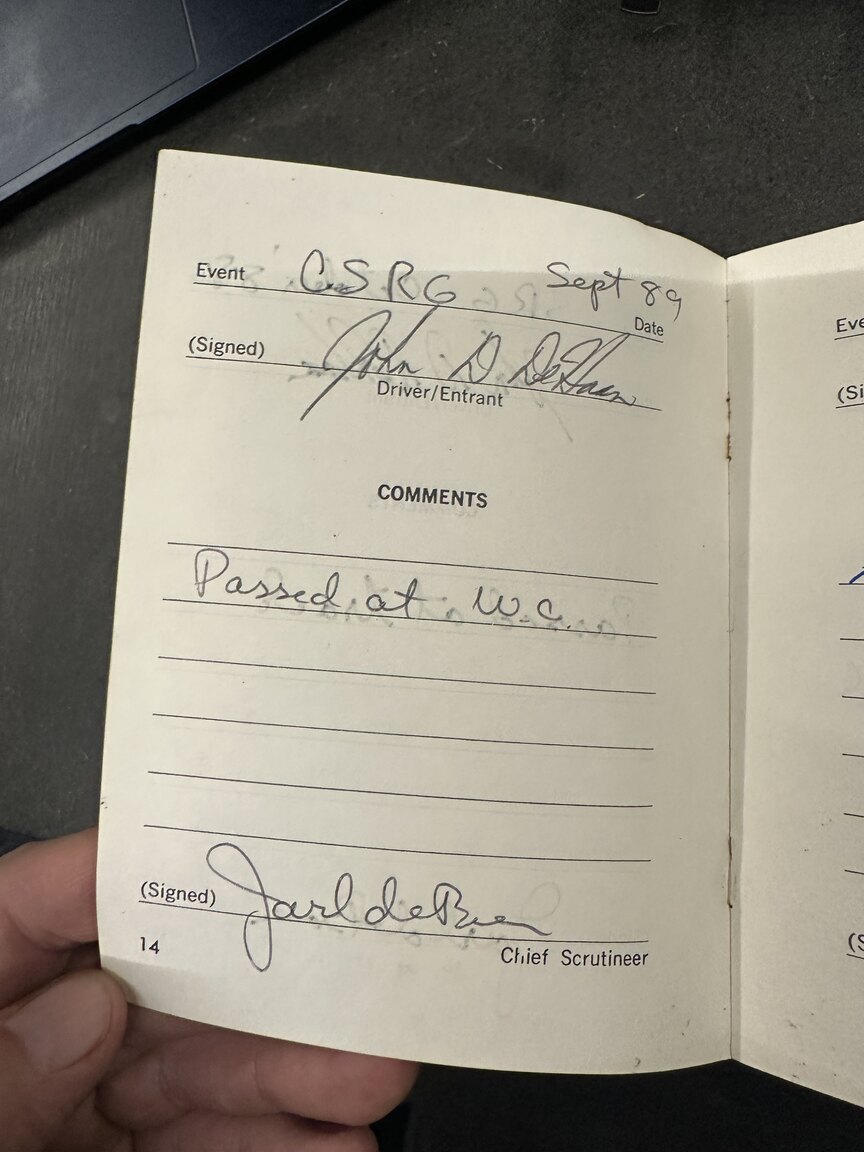 Event C.S.R.G Sept 89
Date
(Signed) John D DeHaan
Driver/Entrant
COMMENTS
Passed at W.C.
(Signed) Jarl de Boer
14 Chief Scrutineer
Eve
(Si
(S